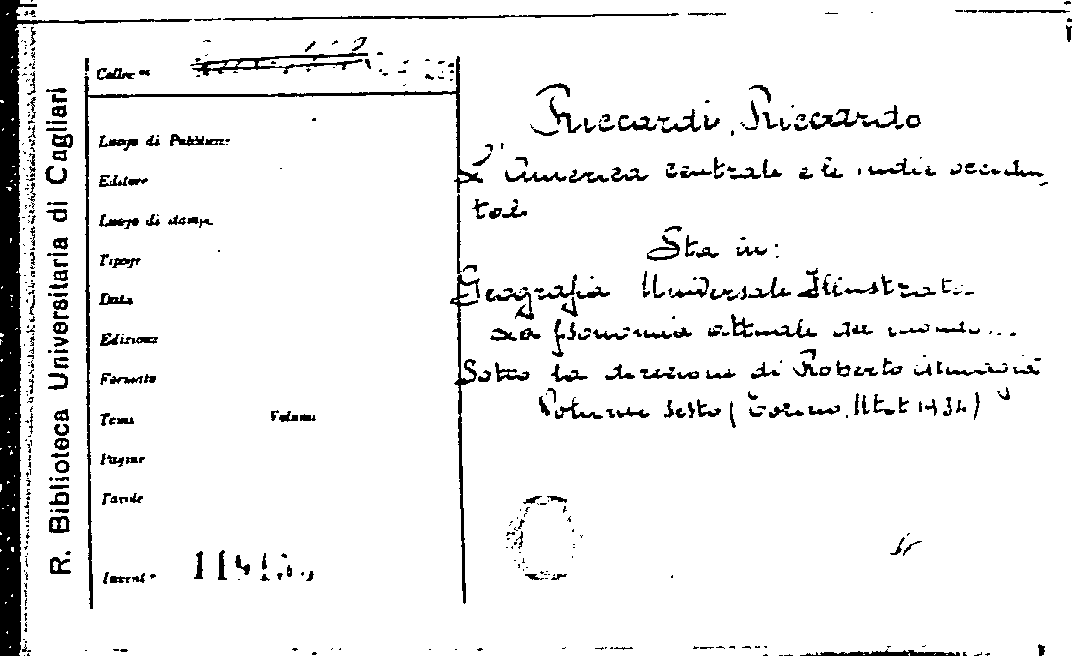 R. Biblioteca Universitaria di Cagliari
Luogo di Pubblicaz.
Editore
Luogo di stampa
Tipogr.
Data
Edizione
Formato
Tomi Volumi
Pagine
Tavole
Invent.
Riccardi, Riccardo
L'America centrale e le indie occiden-
tali
Sta in:
Geografia Universale Illustrata
La fisonomia attuale del mondo...
Sotto la direzione di Roberto Almagià
Volume sesto (Torino, Utet 1934)